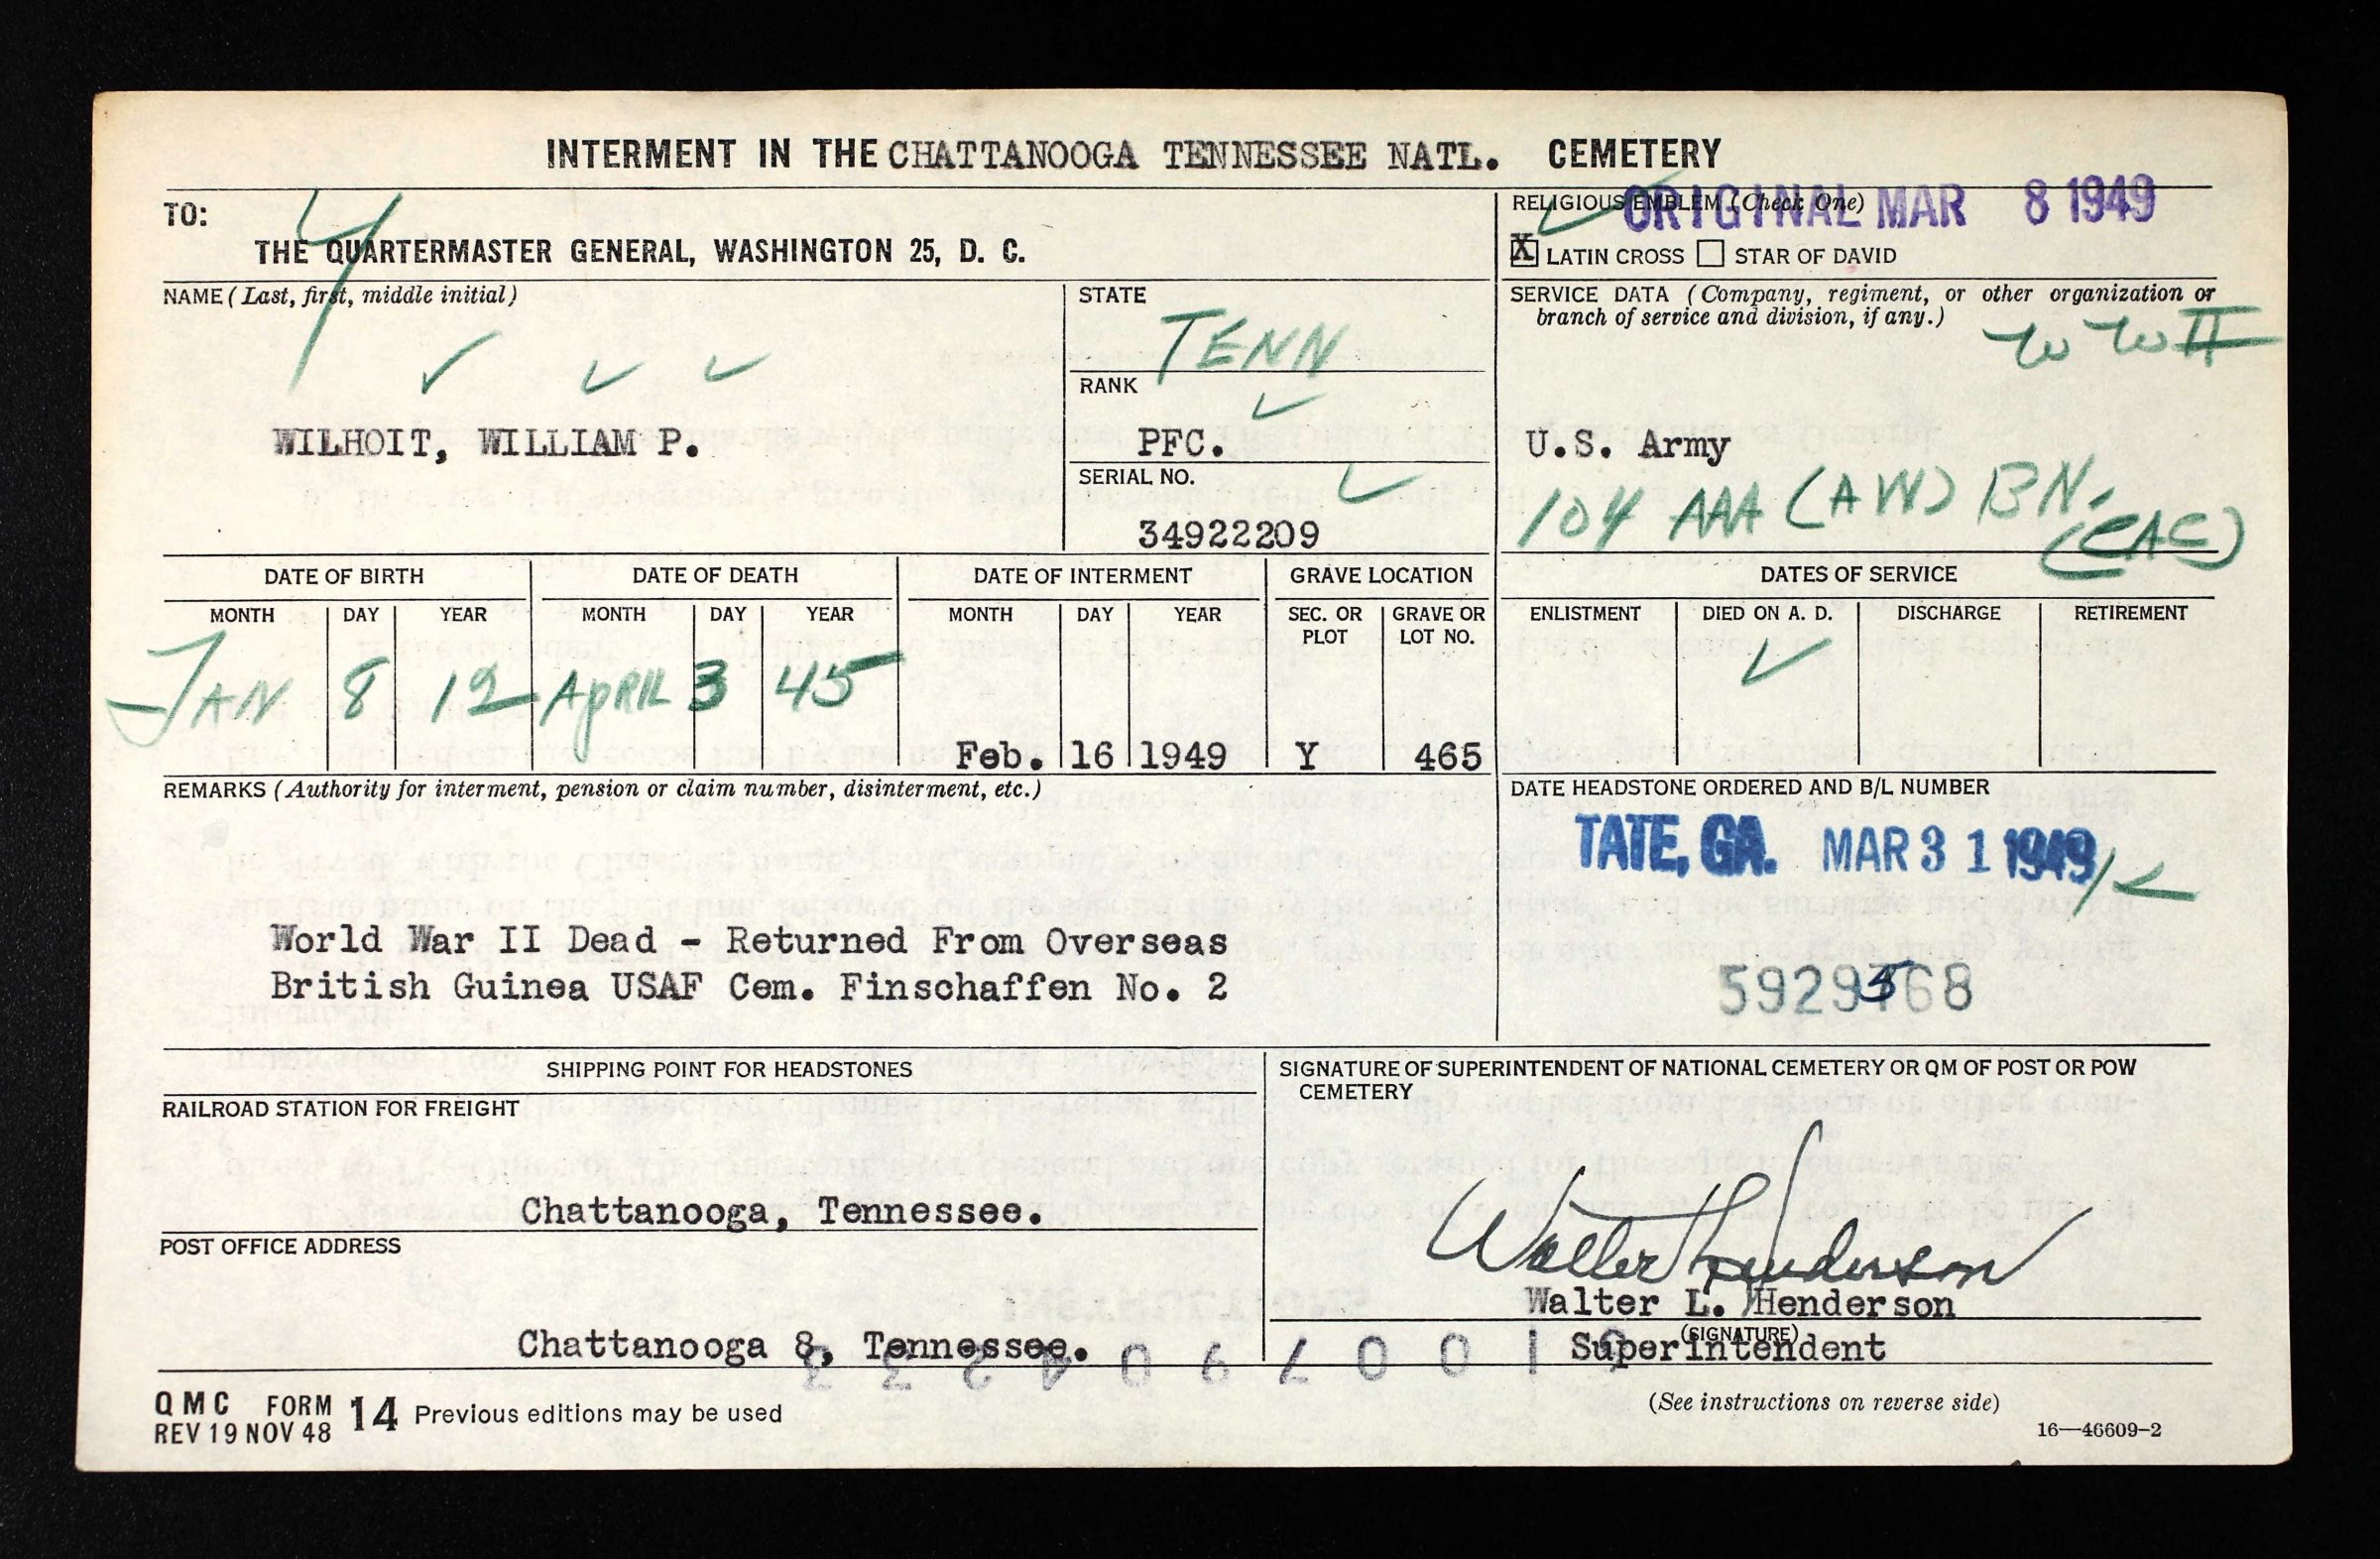 INTERMENT IN THE CHATTANOOGA TENNESSEE NATL. CEMETERY
TO:
THE QUARTERMASTER GENERAL, WASHINGTON 25, D. C.
RELIGIOUS EMBLEM (Check One)
ORIGINAL MAR 8 1949
X LATIN CROSS STAR OF DAVID
NAME (Last, first, middle initial)
WILHOIT, WILLIAM P.
STATE
TENN
RANK
PFC.
SERIAL NO.
34922209
SERVICE DATA (Company, regiment, or other organization or
branch of service and division, if any.)
WW II
U.S. Army
104 AAA (AW) BN.
(CAC)
DATE OF BIRTH DATE OF DEATH DATE OF INTERMENT GRAVE LOCATION DATES OF SERVICE
MONTH DAY YEAR MONTH DAY YEAR MONTH DAY YEAR SEC. OR PLOT GRAVE OR LOT NO. ENLISTMENT DIED ON A. D. DISCHARGE RETIREMENT
JAN 8 12 APRIL 3 45
Feb. 16 1949 Y 465
REMARKS (Authority for interment, pension or claim number, disinterment, etc.)
World War II Dead - Returned From Overseas
British Guinea USAF Cem. Finschaffen No. 2
DATE HEADSTONE ORDERED AND B/L NUMBER
TATE, GA. MAR 31 1949
SHIPPING POINT FOR HEADSTONES
RAILROAD STATION FOR FREIGHT
Chattanooga, Tennessee.
POST OFFICE ADDRESS
Chattanooga 8, Tennessee.
SIGNATURE OF SUPERINTENDENT OF NATIONAL CEMETERY OR QM OF POST OR POW
CEMETERY
Walter L Henderson
Walter L. Henderson
(SIGNATURE)
Superintendent
QMC FORM 14 Previous editions may be used
REV 19 NOV 48
(See instructions on reverse side)
16—46609-2